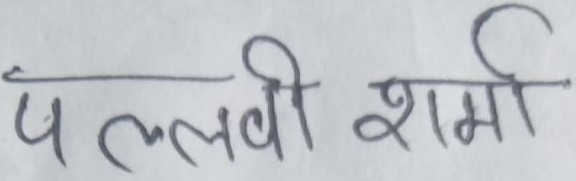 पल्लवी शर्मा